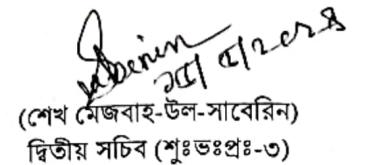 (শেখ মেজবাহ-উল-সাবেরিন)
দ্বিতীয় সচিব (শুঃভঃপ্রঃ-৩)